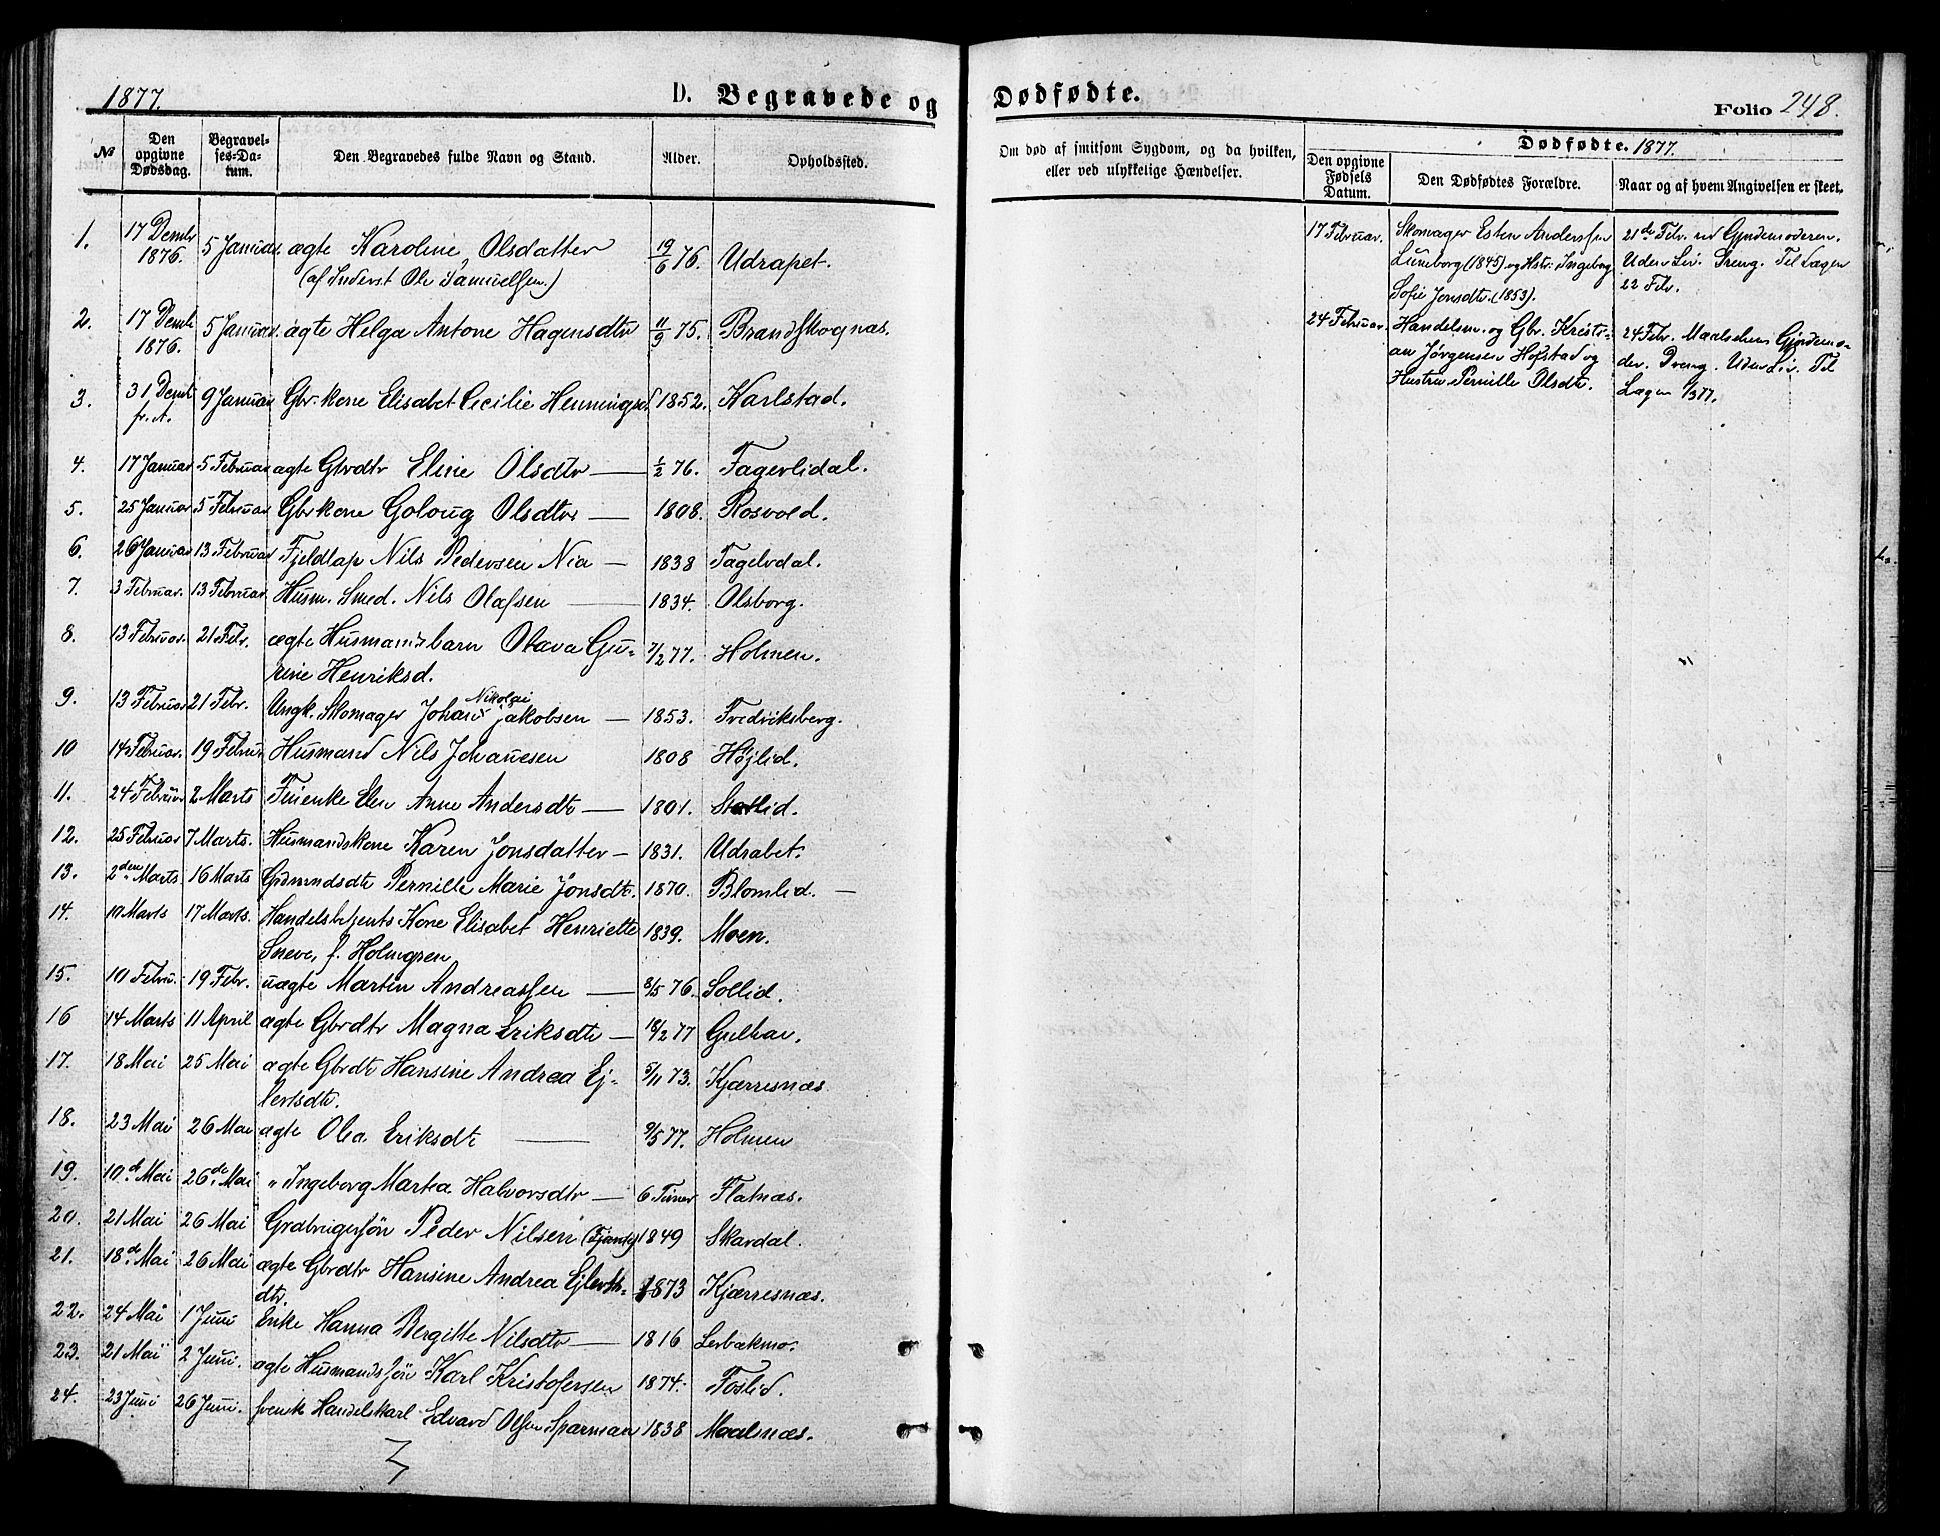 1877. D. Begravede og
№ Den opgivne Dødsdag. Begravelses-Datum. Den Begravedes fulde Navn og Stand. Alder. Opholdssted.
1. 17 Dembr 1876. 5 Januar. ægte Karoline Olsdatter 19/6 76. Udrapet.
(af Inderst Ole Samuelsen.)
2. 17 Demb 1876. 5 Januar. ægte Helga Antone Hagensdtr 11/9 75. Brandskognæs.
3. 31 Demb f.A. 9 Januar Gbr.kone Elisabet Cecilie Henningsd 1852. Karlstad.
4. 17 Januar 5 Februar ægte Gbrdtr Eline Olsdtr — 1/2 76. Fagerlidal.
5. 25 Januar 5 Februar Gbrkone Goloug Olsdtr — 1808. Rosvold.
6. 26 Januar 13 Februar Fjeldlap Nils Pedersen Nia — 1838 Tagelvdal.
7. 3 Februar. 13 Februar. Husm. Smed. Nils Olafsen — 1834. Olsborg.
8. 13 Februar. 21 Febr. ægte Husmandsbarn Olava Gu-
rine Henriksd. 7/2 77. Holmen.
9. 13 Februar 21 Febr. Ungk. Skomager Johan Nikolai Jakobsen — 1853. Fredriksberg.
10 14 Februar. 19 Februar Husmand Nils Johannesen 1808 Højlid.
11. 24 Februar 2 Marts Fattenke Elen Anne Andersdtr — 1801.
12. 25 Februar 7 Marts. Husmandskone Karen Jonsdatter — 1831. Udrabet.
13. 2den Marts 16 Marts Gdmandsdtr Pernille Marie Jonsdtr. 1870. Blomlid. —
14. 10 Marts 17 Marts. Handelsbetjents Kone Elisabet Henriette
Sneve, f. Holmgren 1839. Moen.
15. 10 Febru. 19 Febr. uægte Martin Andreassen — 8/5 76. Sollid.
16 14 Marts 11 April ægte Gbrdtr Magna Eriksdtr — 18/2 77 Gulhav.
17. 18 Mai 25 Mai ægte Gbrdtr Hansine Andrea Ej-
lertsdtr. 5/11 73. Kjærresnæs
18. 23 Mai 26 Mai ægte Olea Eriksdtr — 9/5 77. Holmen
19. 10de Mai 26de Mai " Ingeborg Martea Halvorsdtr — 6 Timer Flatnæs.
20. 21 Mai 26 Mai Grdbrugersøn Peder Nilsen 1849 Skardal.
21. 18de Mai 26 Mai ægte Gbrdtr Hansine Andrea Ejlerts-
dtr. 1873 Kjærresnæs.
22. 24 Mai 1 Juni Enke Hanna Bergitte Nilsdtr — 1816 Lerbakmo.
23. 21 Mai 2 Juni. ægte Husmandssøn Karl Kristofersen 1874. Foslid.
24. 23 Juni 26 Juni. svensk Handelskarl Edvard Olsen Sparman 1838 Maalsnæs.
Dødfødte. Folio 248.
Om død af smitsom Sygdom, og da hvilken,
eller ved ulykkelige Hændelser.
Dødfødte. 1877.
Den opgivne Fødsels Datum. Den Dødfødtes Forældre. Naar og af hvem Angivelsen er skeet.
17 Februar. Skomager Esten Anderssen 21de Febr. ved Gjordemoderen.
Luneborg (1845) og Hstr. Ingeborg Uden Liv. Dreng. Til Lægen
Sofie Jonsdtr. (1853). 22 Febr.
24 Februar. Handelsm. og Gbr. Kristi- 24 Febr. Maalselvens Gjordemo-
an Jørgensen Hofstad og der. Dreng. Uden Liv. Til
Hustru Pernille Olsdtr. Lægen 1/3 77.